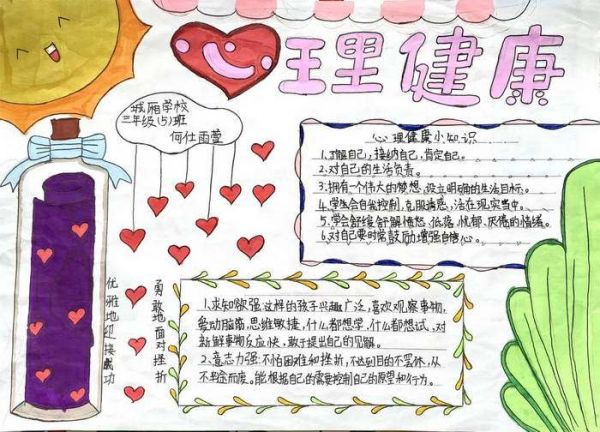 心理健康
城厢学校
三年级(5)班
何仕雨萱
心理健康小知识
1.了解自己,接纳自己,肯定自己。
2.对自己的生活负责。
3.拥有一个伟大的梦想,设立明确的生活目标。
4.学生会自我控制,克服诱惑,活在现实当中。
5.学会舒缓舒解愤怒、低落、忧郁、厌倦的情绪。
6.对自己要时常鼓励,增强自信心。
勇敢地面对挫折
优雅地迎接成功
1.求知欲强:这样的孩子兴趣广泛,喜欢观察事物,
爱动脑筋,思维敏捷,什么都想学,什么都想试,对
新鲜事物反应快,敢于提出自己的见解。
2.意志力强:不怕困难和挫折,不达到目的不罢休,从
不半途而废。能根据自己的需要控制自己的愿望和行为。